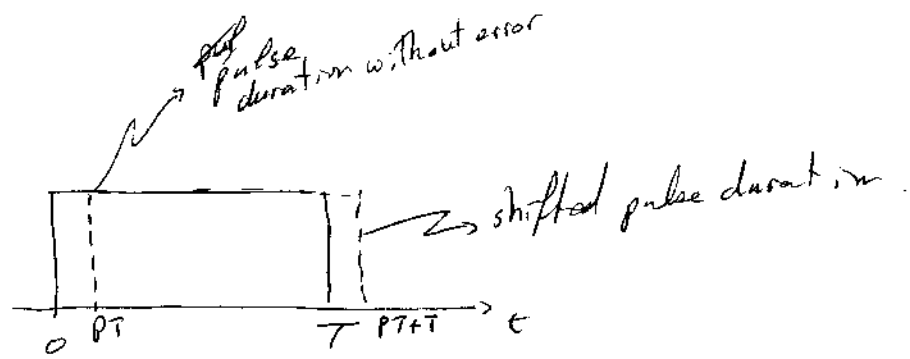 pulse
duration without error
shifted pulse duration.
0 PT T PT+T t